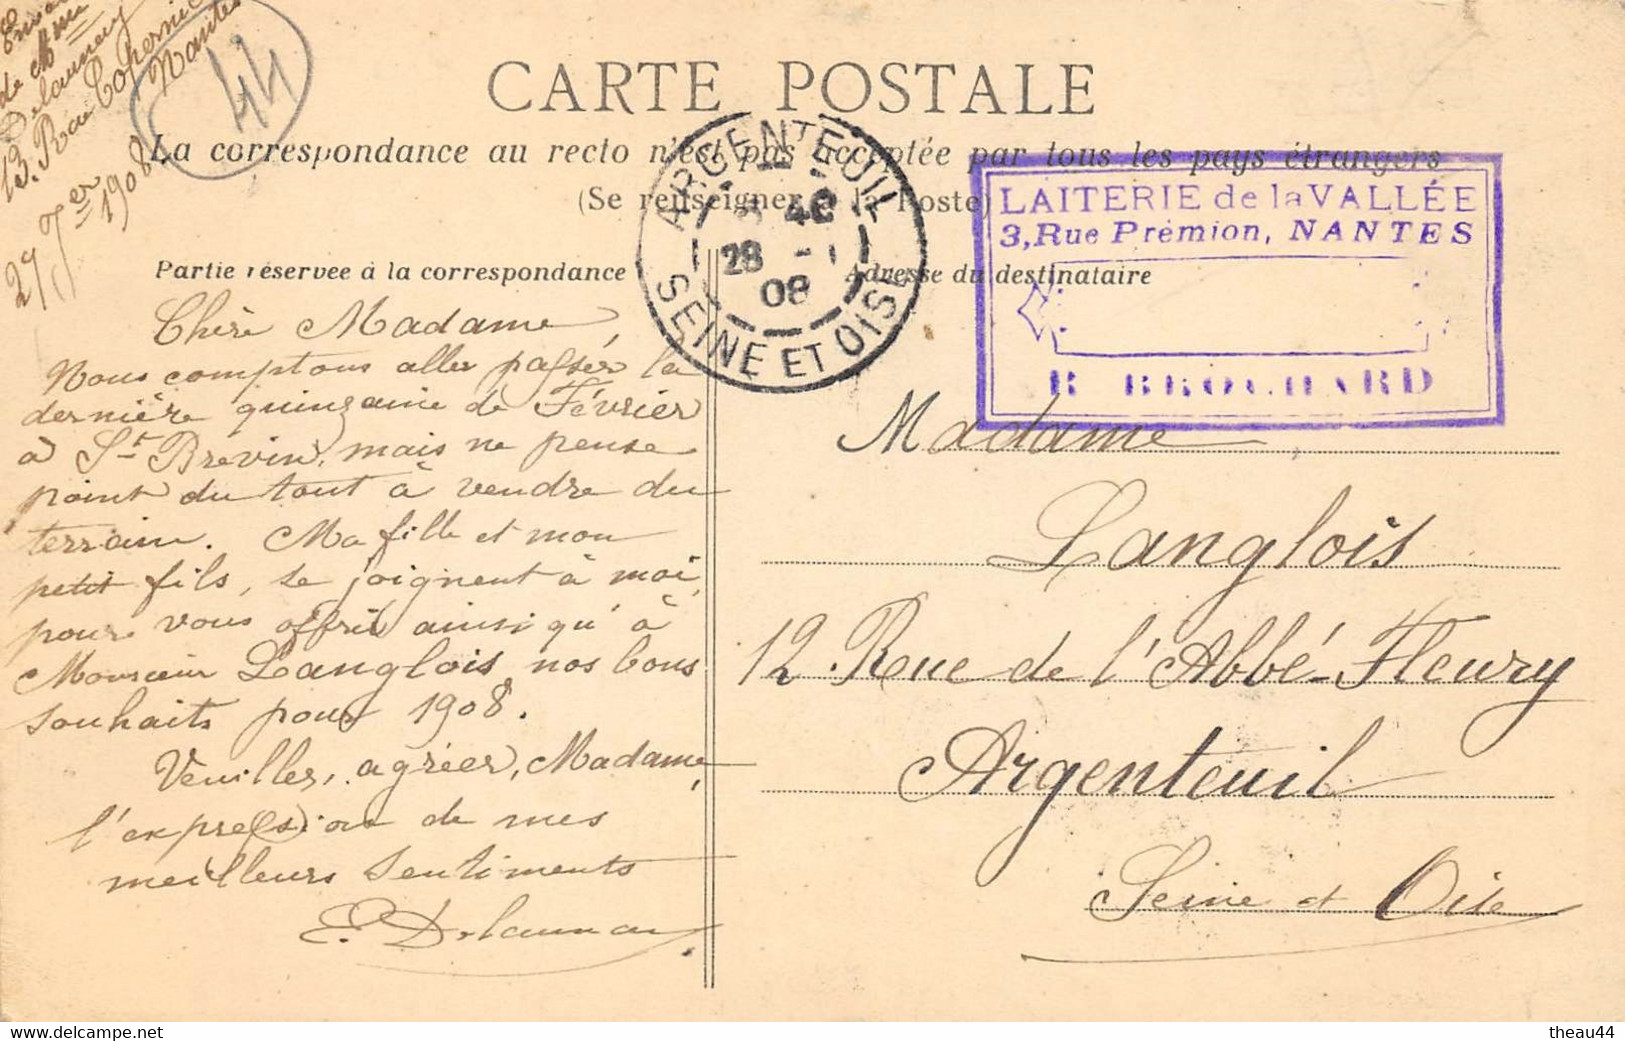 Envoi
de Mme
Delaunay
13. Rue Copernic
Nantes
44
27 Jer 1908
CARTE POSTALE
La correspondance au recto n'est pas acceptée par tous les pays étrangers
(Se renseigner à la Poste)
ARGENTEUIL
28 - 1
08
SEINE ET OISE
LAITERIE de la VALLÉE
3, Rue Prémion, NANTES
BROCHARD
Partie réservée à la correspondance
Chère Madame,
Nous comptons aller passer la
dernière quinzaine de Février
à St Brevin, mais ne pense
point du tout à vendre du
terrain. Ma fille et mon
petit fils, se joignent à moi,
pour vous offrir ainsi qu'à
Monsieur Langlois nos bons
souhaits pour 1908.
Veuilles, agréer, Madame,
l'expression de mes
meilleurs sentiments
E. Delaunay
Adresse du destinataire
Madame
Langlois
12 Rue de l'Abbé-Fleury
Argenteuil
Seine et Oise
theau44